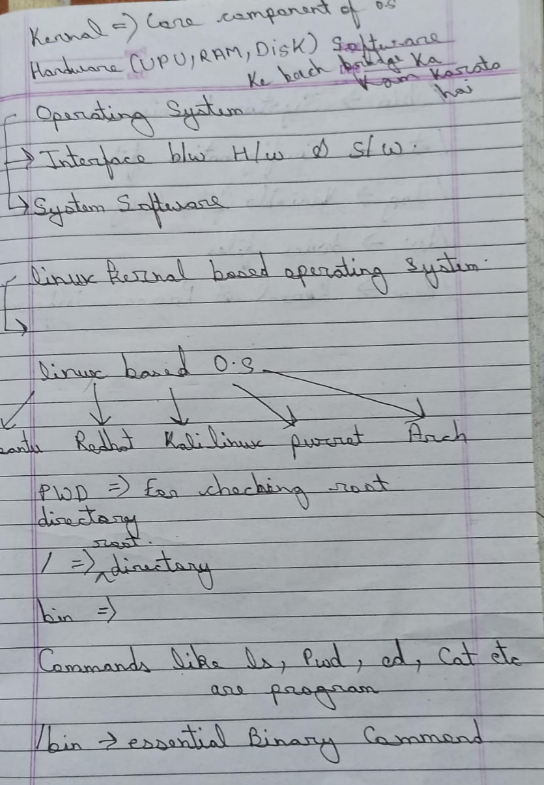 Kernal => Core component of O.S
Hardware (CPU, RAM, Disk) Software
Ke bach bridge Ka
Kam Karata
hai
Operating System
→ Interface b/w H/w & S/w.
→ System Software
linux Kernal based operating system.
linux based O.S
Redhat Kali linux parrot Arch
PWD => For checking root
directory
root
/ => directory
bin =>
Commands like ls, Pwd, cd, Cat etc
are program
/bin → essential Binary Command